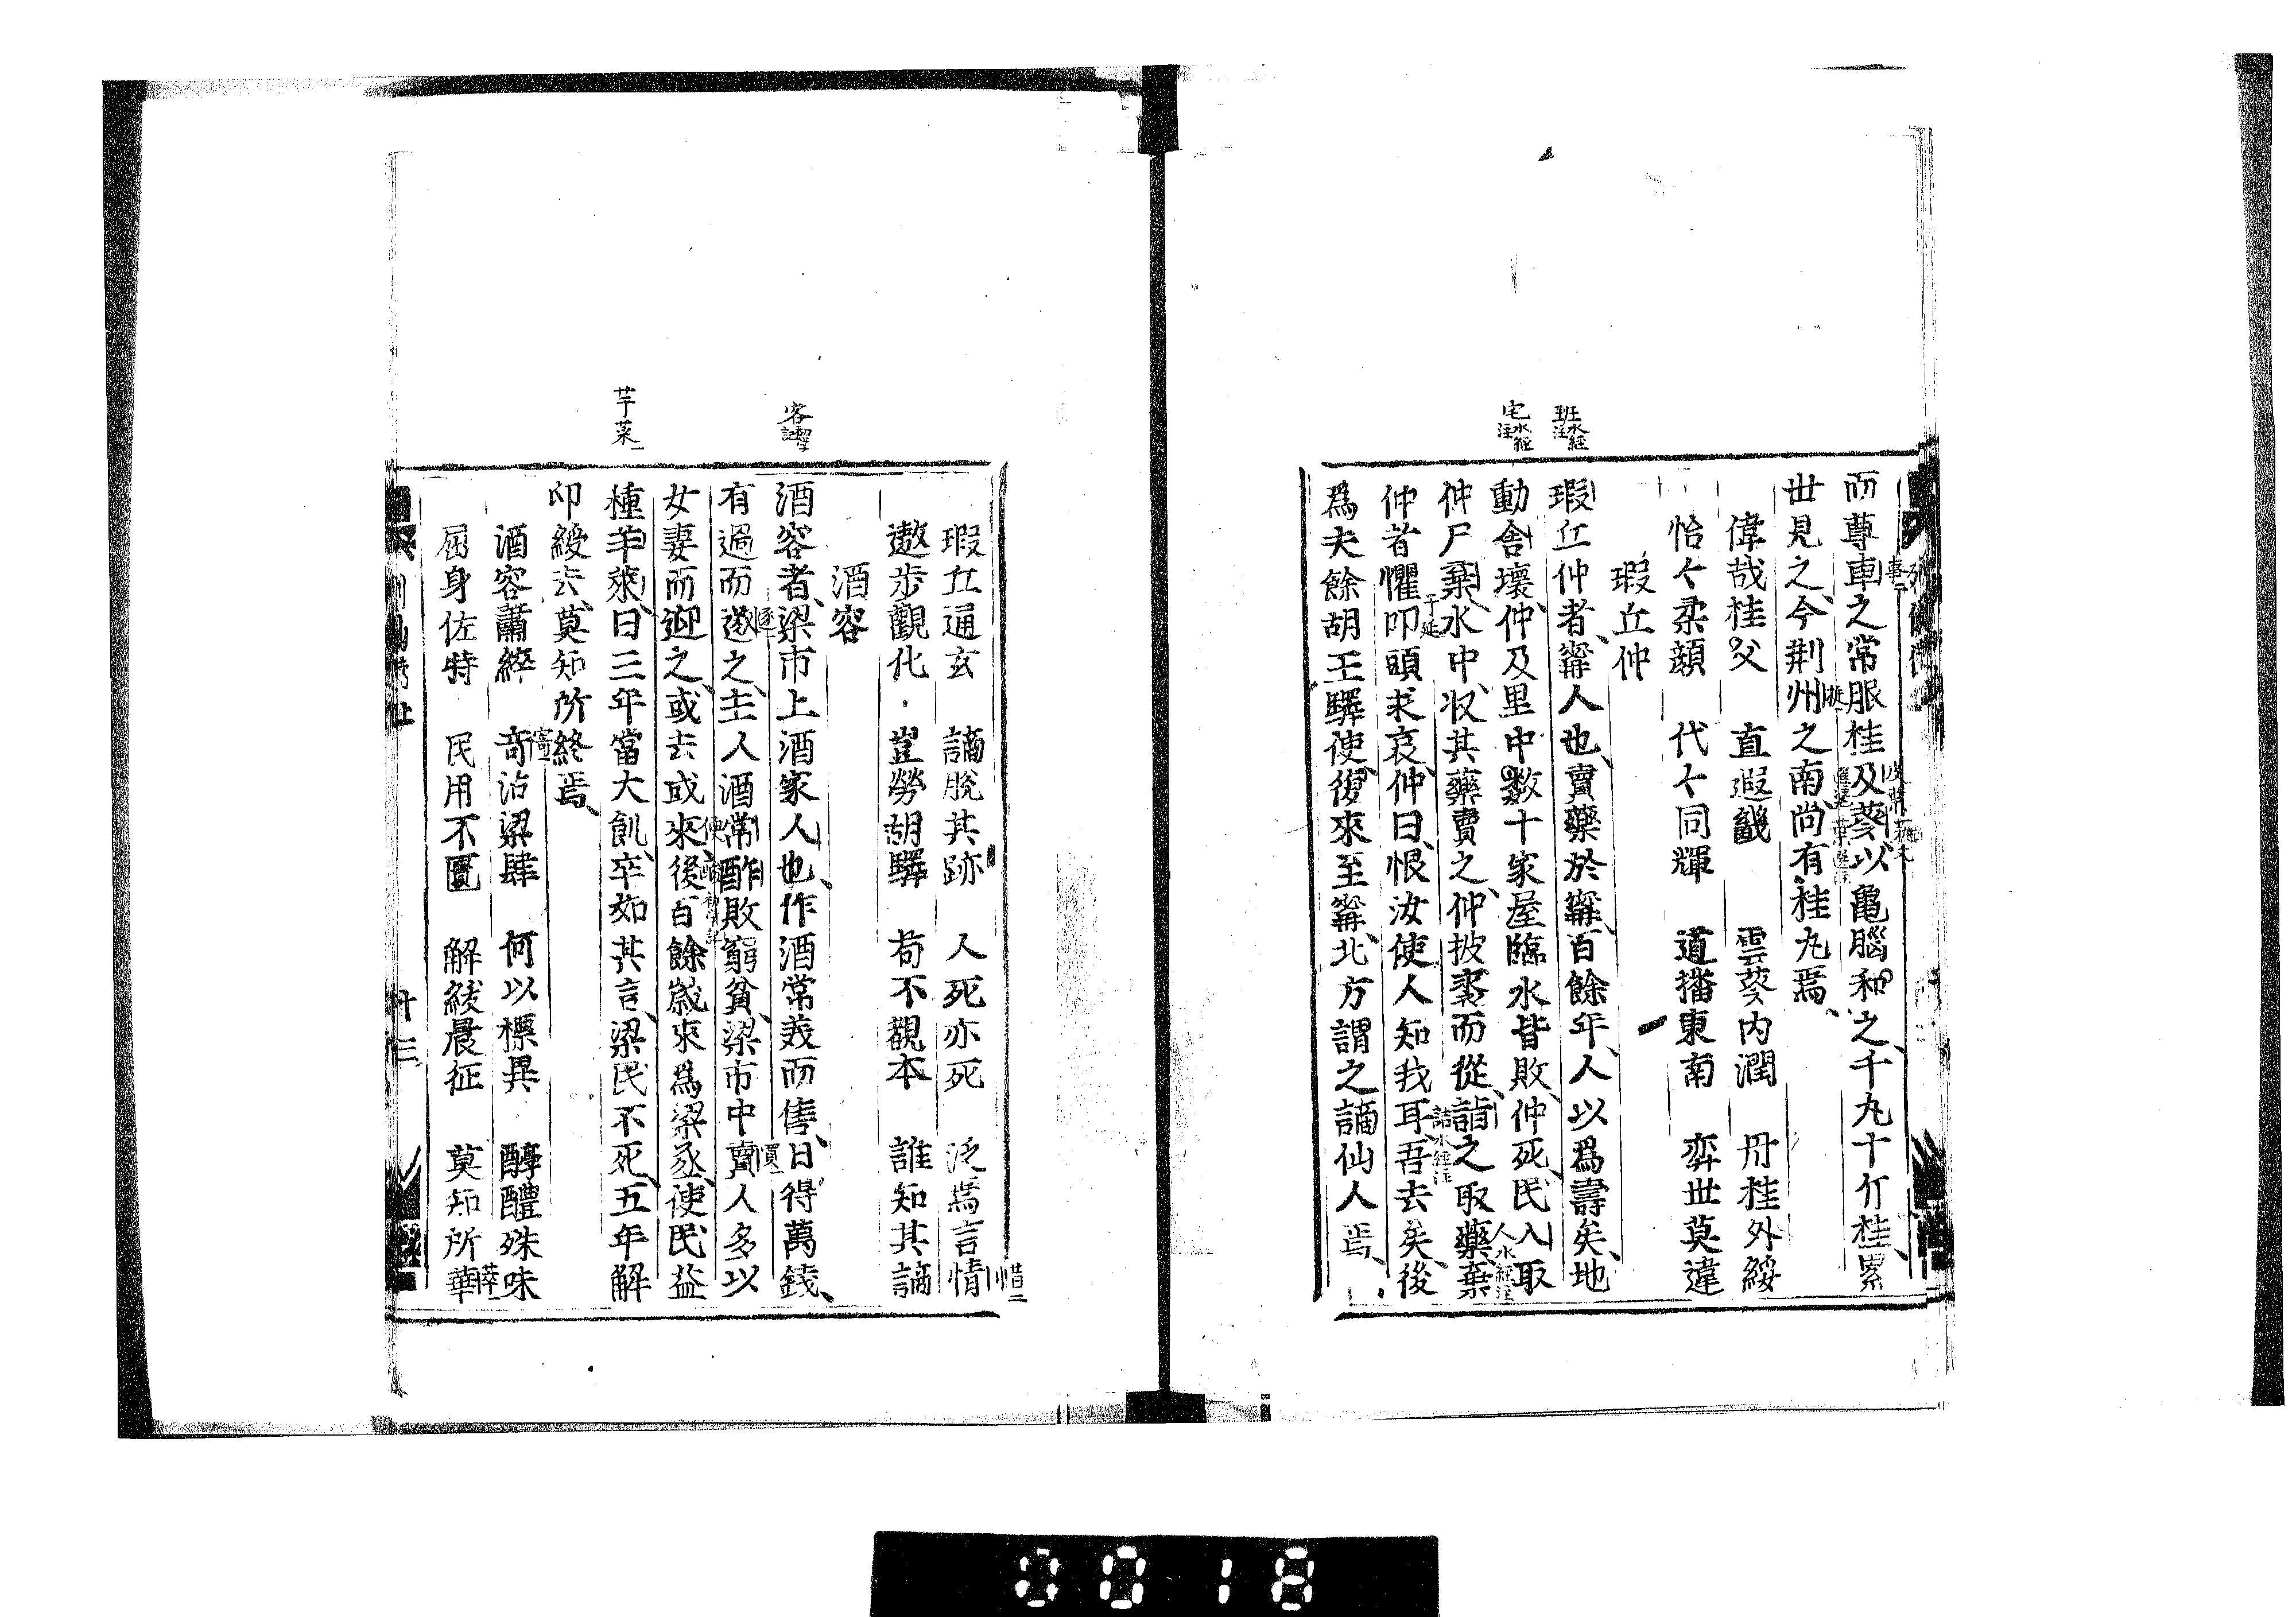 而尊車之常服桂及葵以龜腦和之千丸十斤桂累
世見之今荆州之南尚有桂丸焉
偉哉桂父　直遐畿　雲葵内潤　丹桂外綏
怡々柔顔　代々同輝　道播東南　弈世莫違
瑕丘仲
瑕丘仲者甯人也賣藥於甯百餘年人以爲壽矣地
動舎壞仲及里中数十家屋臨水皆敗仲死民入取
仲尸棄水中収其藥賣之仲披裘而從詣之取藥棄
仲者懼叩頭求哀仲曰恨汝使人知我耳吾去矣後
爲夫餘胡王驛使復來至甯北方謂之謫仙人焉
班水經注
宅水經注
瑕丘通玄　謫脱其跡　人死亦死　泛焉言情
遨歩觀化　豈勞胡驛　苟不觀本　誰知其謫
酒容
酒容者梁市上酒家人也作酒常羙而售日得萬錢
有過而逐之主人酒常酢敗窮貧梁市中賣人多以
女妻而迎之或去或來後百餘歳來爲梁丞使民益
種芋菜曰三年當大飢卒如其言梁民不死五年解
印綬去莫知所終焉
酒容蕭綷　奇沽梁肆　何以標異　醇醴殊味
屈身佐時　民用不匱　解紱晨征　莫知所華
惜二
芋菜一
十三
0018